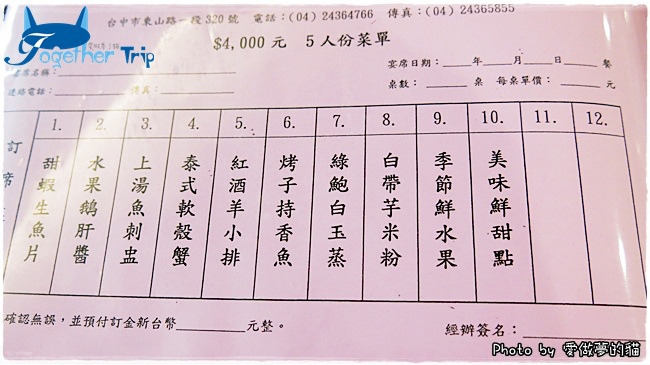 台中市東山路一段320號 電話:(04) 24364766 傳真:(04) 24365855
Together Trip
$4,000元 5人份菜單
宴席日期:____年____月____日 餐
席名稱:
連絡電話: 傳真:
桌數: 桌 每桌單價: 元
訂席
1. 甜蝦生魚片
2. 水果鵝肝醬
3. 上湯魚刺盅
4. 泰式軟殼蟹
5. 紅酒羊小排
6. 烤子持香魚
7. 綠鮑白玉蒸
8. 白帶芋米粉
9. 季節鮮水果
10. 美味鮮甜點
11.
12.
確認無誤,並預付訂金新台幣________元整。
經辦簽名:
Photo by 愛做夢的貓